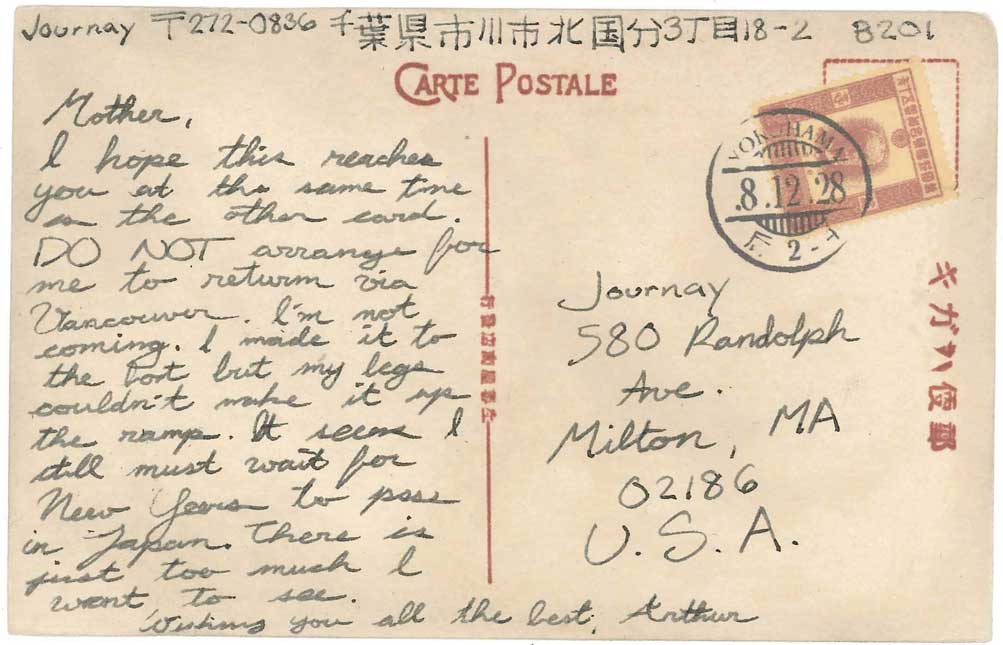 Journay 〒272-0836 千葉県市川市北国分3丁目18-2 B201
CARTE POSTALE
Mother,
I hope this reaches
you at the same time
as the other card.
DO NOT arrange for
me to return via
Vancouver. I'm not
coming. I made it to
the Port but my legs
couldn't make it up
the ramp. It seems I
still must wait for
New Years to pass
in Japan. There is
just too much I
want to see.
Wishing you all the best, Arthur
YOKOHAMA
8.12.28
Journay
580 Randolph
Ave.
Milton, MA
02186
U.S.A.
キガハ便郵